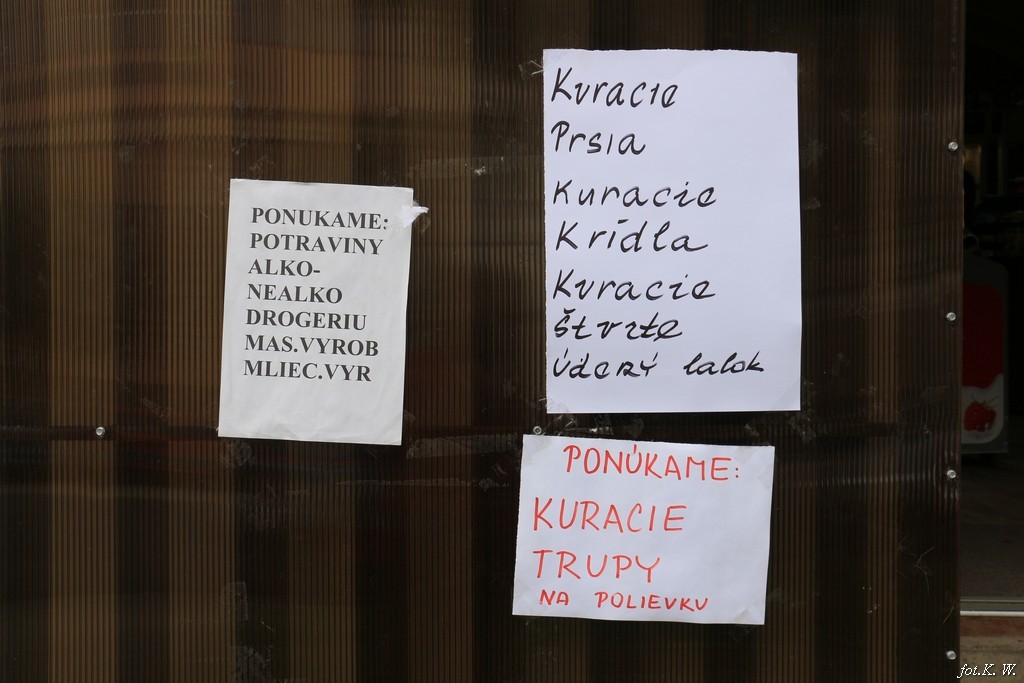 PONUKAME:
POTRAVINY
ALKO-
NEALKO
DROGERIU
MAS.VYROB
MLIEC.VYR
Kuracie
Prsia
Kuracie
Krídla
Kuracie
štvrte
údený lalok
PONÚKAME:
KURACIE
TRUPY
NA POLIEVKU
fot.K. W.